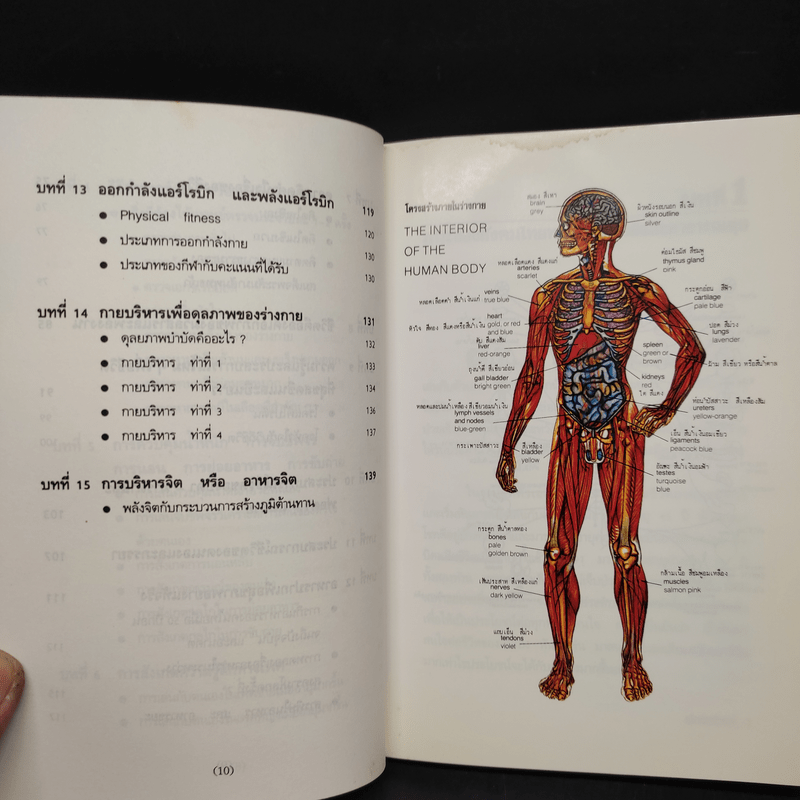 บทที่ 13 ออกกำลังแอร์โรบิก และพลังแอร์โรบิก 119
● Physical fitness 120
● ประเภทการออกกำลังกาย 130
● ประเภทของกีฬากับคะแนนที่ได้รับ 130
บทที่ 14 กายบริหารเพื่อดุลภาพของร่างกาย 131
● ดุลยภาพบำบัดคืออะไร ? 132
● กายบริหาร ท่าที่ 1 133
● กายบริหาร ท่าที่ 2 134
● กายบริหาร ท่าที่ 3 136
● กายบริหาร ท่าที่ 4 137
บทที่ 15 การบริหารจิต หรือ อาหารจิต 139
● พลังจิตกับกระบวนการสร้างภูมิต้านทาน
(10)
โครงสร้างภายในร่างกาย
THE INTERIOR
OF THE
HUMAN BODY
สมอง สีเทา
brain
grey
หลอดเลือดแดง สีแดงแก่
arteries
scarlet
veins
หลอดเลือดดำ สีน้ำเงินแก่ true blue
heart
หัวใจ สีทอง สีแดงหรือสีน้ำเงิน gold, or red
and blue
ตับ สีแดงส้ม
liver
red-orange
ถุงน้ำดี สีเขียวอ่อน
gall bladder
bright green
หลอดและปมน้ำเหลือง สีเขียวอมน้ำเงิน
lymph vessels
and nodes
blue-green
กระเพาะปัสสาวะ สีเหลือง
bladder
yellow
กระดูก สีน้ำตาลทอง
bones
pale
golden brown
เส้นประสาท สีเหลืองแก่
nerves
dark yellow
แถบเอ็น สีม่วง
tendons
violet
ผิวหนังรอบนอก สีเงิน
skin outline
silver
ต่อมไทมัส สีชมพู
thymus gland
pink
กระดูกอ่อน สีฟ้า
cartilage
pale blue
ปอด สีม่วง
lungs
lavender
spleen
green or
brown
ม้าม สีเขียว หรือสีน้ำตาล
kidneys
red
ไต สีแดง
ท่อนำปัสสาวะ สีเหลืองส้ม
ureters
yellow-orange
เอ็น สีน้ำเงินอมเขียว
ligaments
peacock blue
อัณฑะ สีน้ำเงินอมฟ้า
testes
turquoise
blue
กล้ามเนื้อ สีชมพูอมเหลือง
muscles
salmon pink